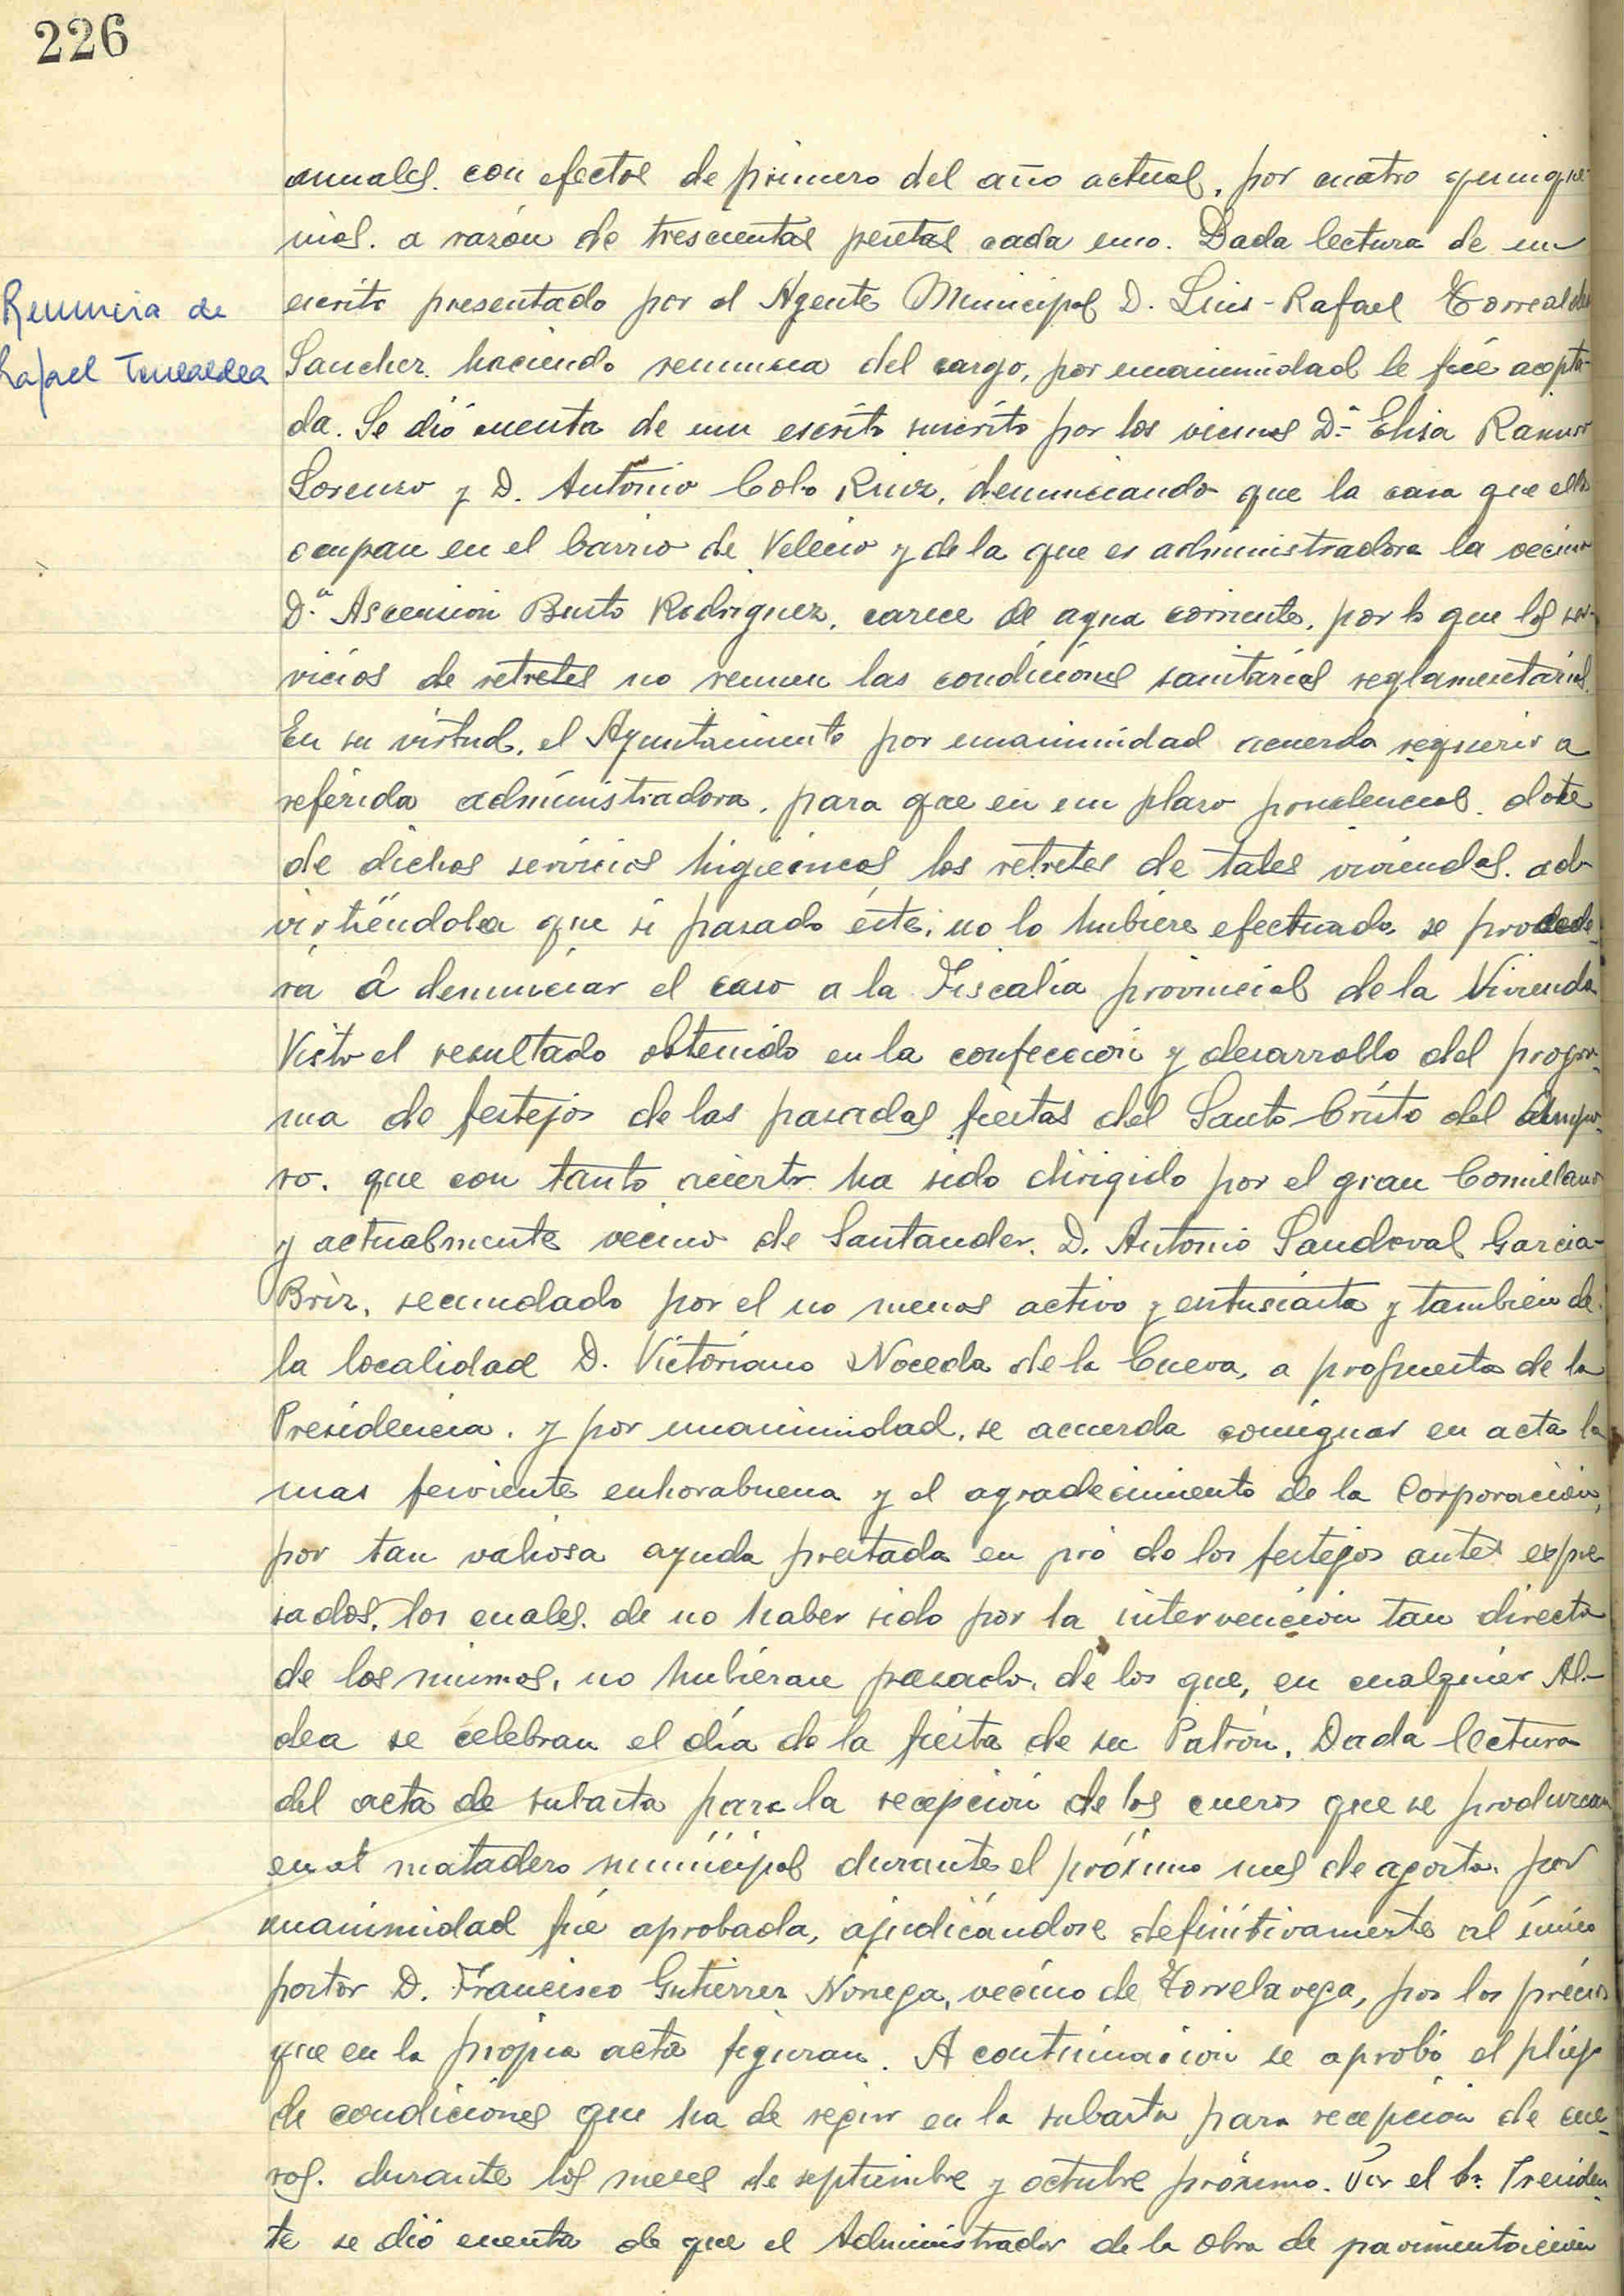 226
anuales. con efectos de primero del año actual, por cuatro quinque-
nios. a razón de trescientas pesetas cada uno. Dada lectura de un
Renuncia de
Rafael Torrealdea
escrito presentado por el Agente Municipal D. Luis-Rafael Torrealdea
Sanchez. haciendo renuncia del cargo, por unanimidad le fué acepta-
da. Se dió cuenta de un escrito suscrito por los vecinos D.ª Elisa
Lorenzo y D. Antonio Cobo Ruiz, denunciando que la casa que ellos
ocupan en el barrio de Velecio y de la que es administradora la vecina
D.ª Ascension Busto Rodriguez, carece de agua corriente, por lo que los ser-
vicios de retretes no reunen las condiciones sanitarias reglamentarias.
En su virtud, el Ayuntamiento por unanimidad acuerda requerir a
referida administradora, para que en un plazo prudencial. dote
de dichos servicios higiénicos los retretes de tales viviendas. ad-
virtiéndola que si pasado éste, no lo hubiere efectuado, se procede-
rá á denunciar el caso a la Fiscalía provincial de la Vivienda
Visto el resultado obtenido en la confección y desarrollo del progra-
ma de festejos de las pasadas fiestas del Santo Cristo del Ampa-
ro. que con tanto acierto ha sido dirigido por el gran Comillano
y actualmente vecino de Santander. D. Antonio Sandoval Garcia-
Briz, secundado por el no menos activo y entusiasta y también de
la localidad D. Victoriano Noceda de la Cueva, a propuesta de la
Presidencia. y por unanimidad, se acuerda consignar en acta la
mas ferviente enhorabuena y el agradecimiento de la Corporación,
por tan valiosa ayuda prestada en pró de los festejos antes expre-
sados, los cuales. de no haber sido por la intervención tan directa
de los mismos, no hubieran pasado, de los que, en cualquier Al-
dea se celebran el día de la fiesta de su Patrón. Dada lectura
del acta de subasta para la recepción de los cueros que se produzcan
en el matadero municipal durante el próximo mes de agosto. por
unanimidad fué aprobada, ajudicándose definitivamente al único
postor D. Francisco Gutierrez Noriega, vecino de Torrelavega, por los precios
que en la propia acta figuran. A continuación se aprobó el pliego
de condiciones que ha de regir en la subasta para recepción de cue-
ros. durante los meses de septiembre y octubre próximo. Por el Sr. Presiden-
te se dió cuenta de que el Administrador de la obra de pavimentación